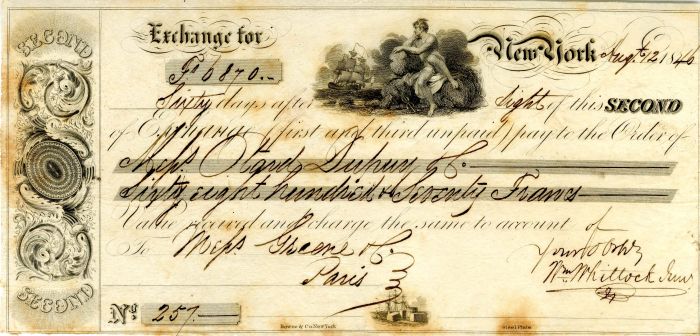 SECOND
Exchange for
New York Augt. 12 1846
Fs 6870.-
Sixty days after Sight of this SECOND
of Exchange (first and third unpaid) pay to the Order of
Messs Otard Dupuy & Co.
Sixty eight hundred & Seventy Francs
Value received and charge the same to account of
To Messs Greene & Co.
Paris
Your Ob. 
Wm. Whitlock Junr
SECOND
No. 257.-
New York
Steel Plate